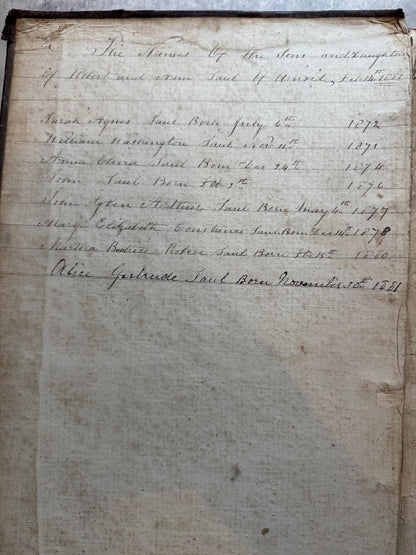 The Names Of the Sons and Daughters
of Robert and Ann Saul Of
Sarah Agnes Saul Born July 6th 1872
William Washington Saul Nov 11th 1873
Anna Saul Born Dec 24th 1874
John Saul Born 1876
John Glen Arthur Saul Born May 4th 1877
Mary Elizabeth Constance Saul Born Dec 14th 1878
Martha Saul Born 15th 1880
Alice Gertrude Saul Born November 30th 1881